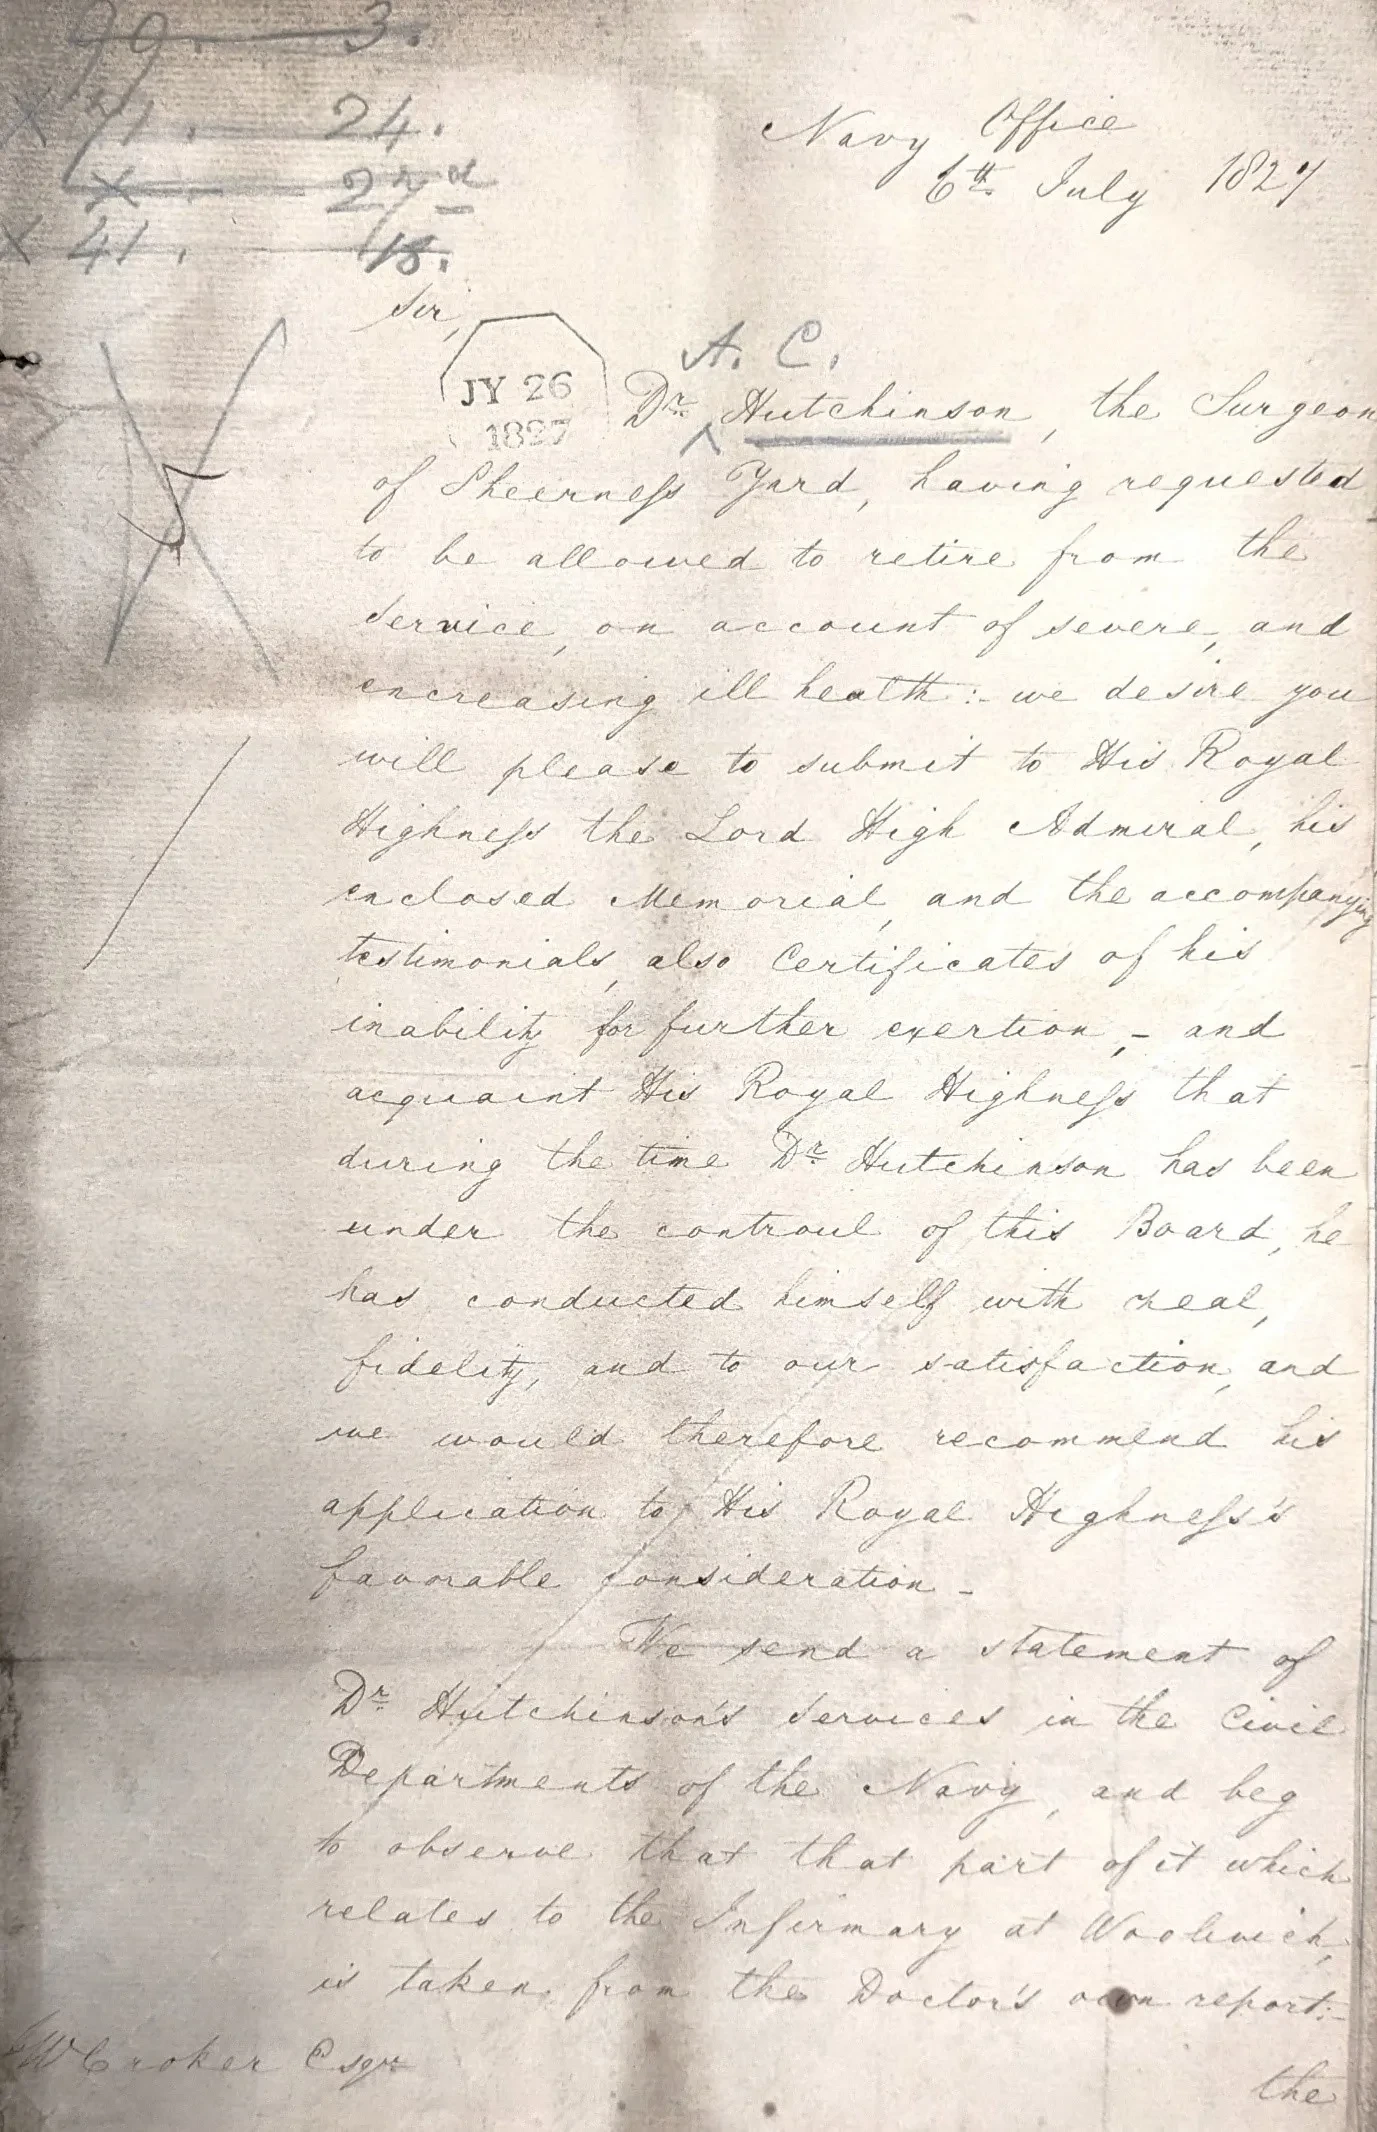 99. 3.
x 71. 24.
x . 27d
x 41. 18.
Navy Office
6th July 1827
Sir,
JY 26
1827
A. C.
Dr ^ Hutchinson, the Surgeon
of Sheerness Yard, having requested
to be allowed to retire from the
Service, on account of severe, and
encreasing ill health:- we desire you
will please to submit to His Royal
Highness the Lord High Admiral, his
enclosed Memorial, and the accompanying
testimonials, also Certificates of his
inability for further exertion,- and
acquaint His Royal Highness that
during the time Dr Hutchinson has been
under the controul of this Board, he
has conducted himself with zeal,
fidelity, and to our satisfaction, and
we would therefore recommend his
application to His Royal Highness's
favorable consideration -
We send a statement of
Dr Hutchinson's Services in the Civil
Departments of the Navy, and beg
to observe that that part of it which
relates to the Infirmary at Woolwich,
is taken from the Doctor's own report:-
the
JW Croker Esqr